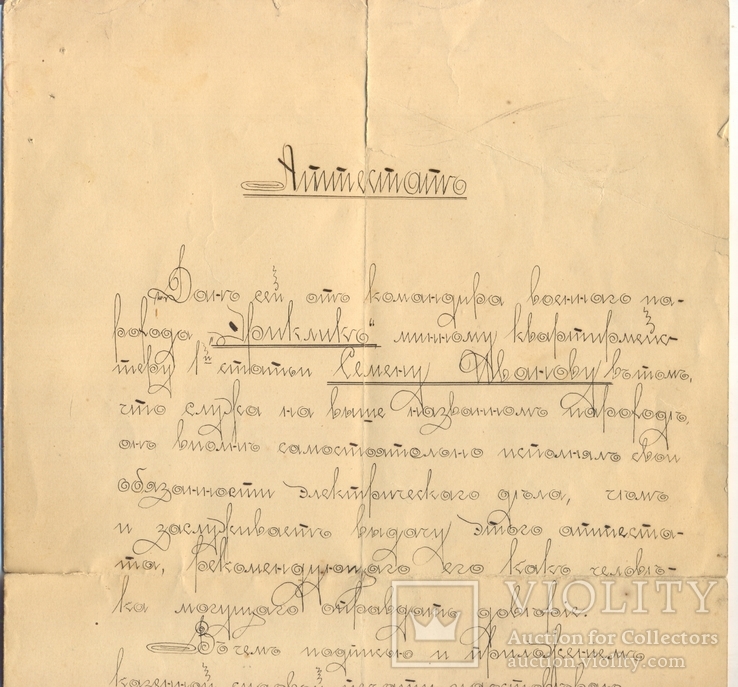 Аттестатъ
Данъ сей отъ командира военнаго па-
рохода „Эриклик“ минному квартирмейс-
теру 1й статьи Семену Иванову въ томъ,
что служа на выше названномъ пароходѣ,
онъ вполнѣ самостоятельно исполнялъ свои
обязанности электрическаго дѣла, чѣмъ
и заслуживаетъ выдачу этого аттеста-
та, рекомендующаго его какъ человѣ-
ка могущаго оправдать довѣріе.
Въ чемъ подписью и приложеніемъ
казенной судовой печати удостовѣряю
VIOLITY
Auction for Collectors
auction.violity.com